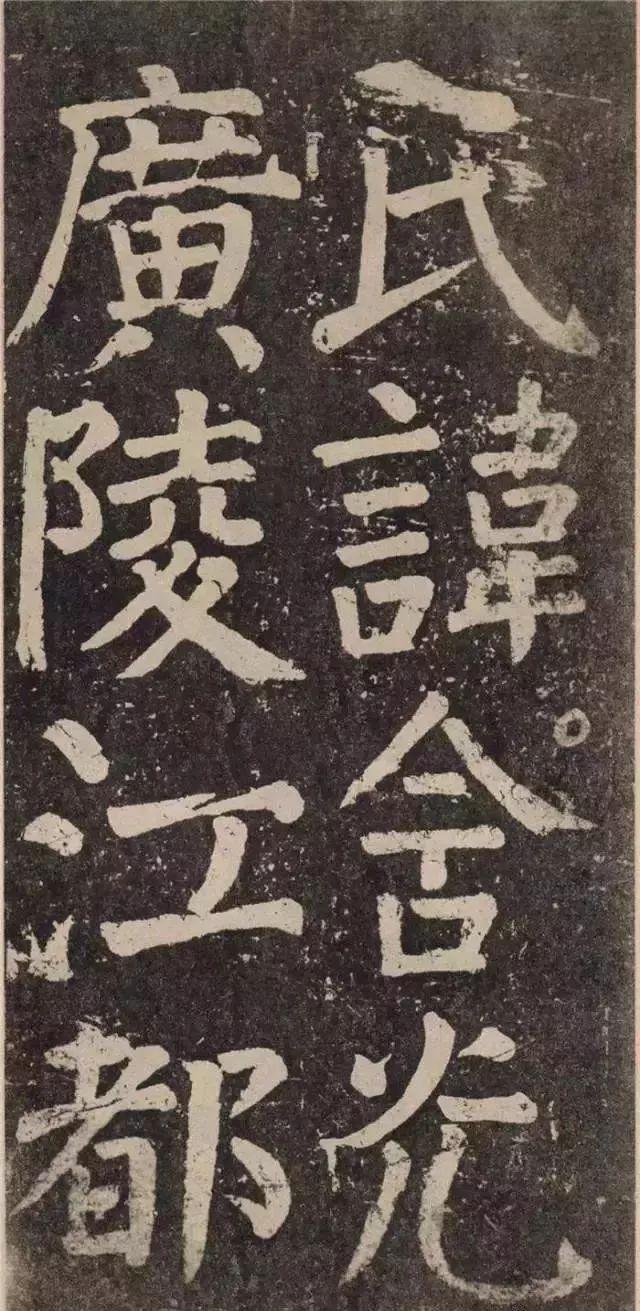 氏諱。含光
廣陵江都